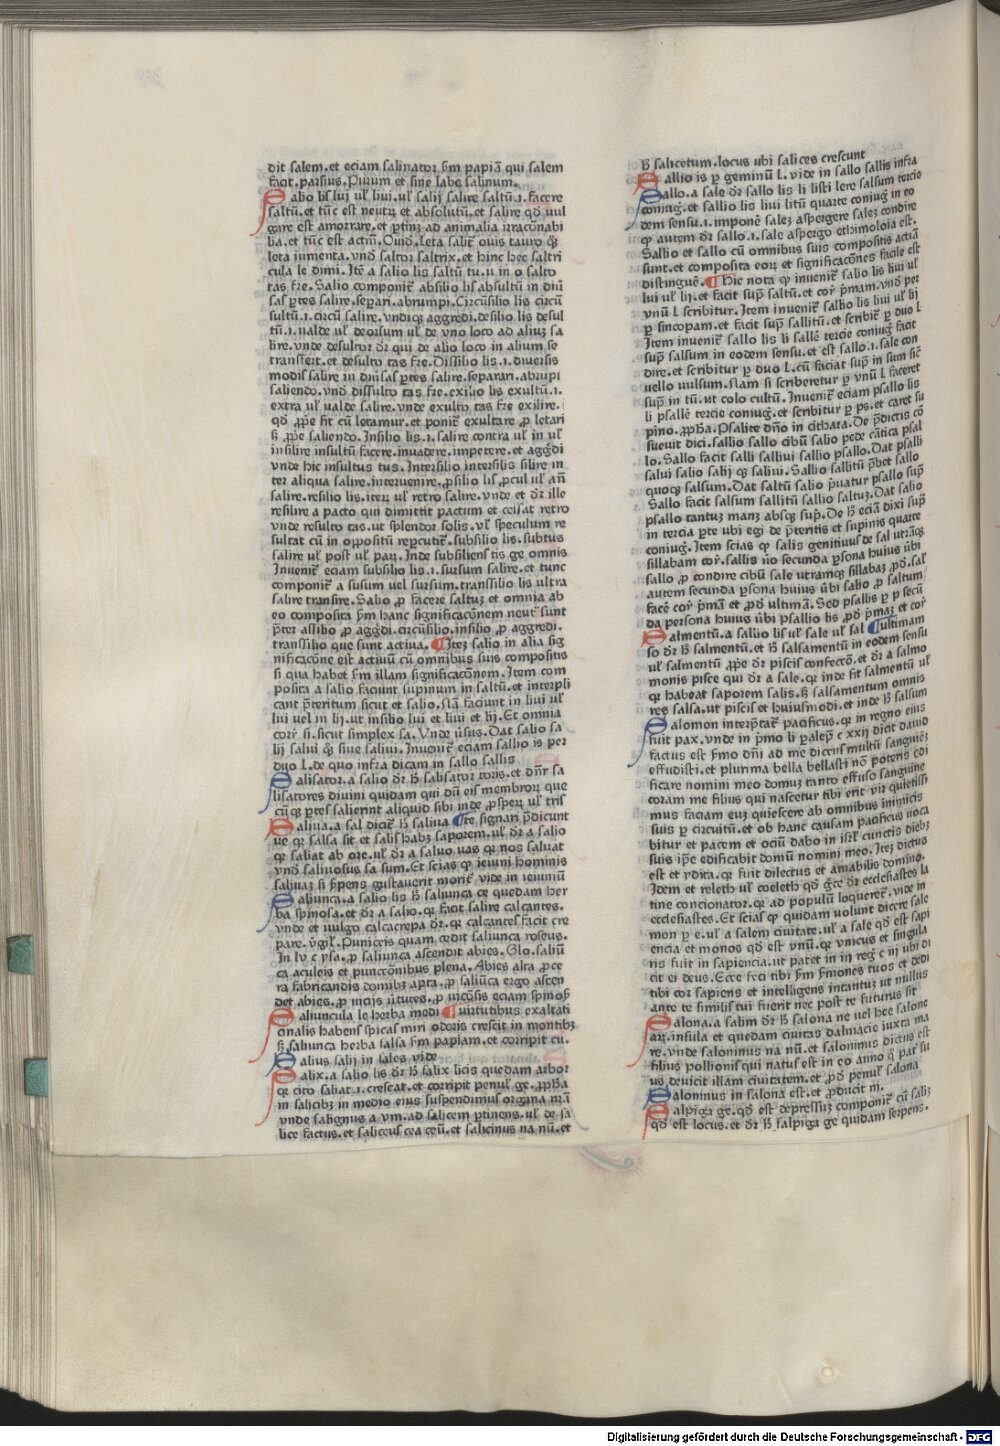 dit salem.et eciam salinator ẜm papiā qui salem
facit.parsius.Purum et sine labe salinum.
Salio lis lui ul' liui.ul' salij salire saltū.i.facere
saltū.et tūc est neutrꝝ et absolutū.et salire qd̄ uul
gare est amorrare.et ptinꝫ ad animalia irracōnabi
lia.et tūc est actiū.Ouid.Leta salit᷑ ouis tauro qꝫ
leta iumenta.vnd̄ saltor saltrix.et hinc hec saltri
cula le dimi.Itē a salio lis saltū tu.u in o salto
tas fre.Salio componit᷑ absilio lis absultū in diū
sas ꝑtes salire.separi.abrumpi.Circūsilio lis circū
sultū.i.circū salire.vndiqꝫ aggredi.desilio lis desul
tū.i.ualde ul' deorsum ul' de vno loco ad aliuꝫ sa
lire.vnde desultor dr̄ qui de alio loco in alium se
transfert.et desulto tas fre.Dissilio lis.i.diuersis
modis salire in diūsas ꝑtes salire.separari.abrupi
saliendo.vnd̄ dissulto tas fre.exilio lis exultū.i.
extra ul' ualde salire.vnde exulto tas fre exilire.
qd̄ ꝓpe fit cū letamur.et ponit᷑ exultare ꝓ letari
ẜ ꝓpe saliendo.Insilio lis.i.salire contra ul' in ul'
insilire insultū facere.inuadere.impetere.et aggd̄i
vnde hic insultus tus.Intersilio intersilis silire in
ter aliqua salire.interuenire.ꝓsilio lis ꝓcul ul' an̄
salire.resilio lis.iterꝫ ul' retro salire.vnde et dr̄ ille
resilire a pacto qui dimittit pactum et cessat retro
vnde resulto tas.ut splendor solis.vl' speculum re
sultat cū in oppositū reꝑcutit᷑.subsilio lis.subtus
salire ul' post ul' paꝝ.Inde subsiliens tis ge omnis
Inuenit᷑ eciam subsilio lis.i.sursum salire.et tunc
componit᷑ a susum uel sursum.transsilio lis ultra
salire transire.Salio ꝓ facere saltuꝫ et omnia ab
eo composita ꝑm hanc significacōnem neut᷑ sunt
p̄ter assilio ꝓ aggd̄i.circūsilio.insilio ꝓ aggredi.
transsilio que sunt actiua.¶Iteꝫ salio in alia sig
nificacōne est actiuū cū omnibus suis compositis
si qua habet ẜm illam significacōnem.Item com
posita a salio faciunt supinum in saltū.et interpli
cant p̄teritum sicut et salio.Nā faciunt in liui ul'
lui uel in lij.ut insilio lui et liui et lij.Et omnia
cor᷑ si.sicut simplex sa.Vnde ūsus.Dat salio sa
lij salui qꝫ siue saliui.Inuenit᷑ eciam sallio is per
duo L.de quo infra dicam in sallo sallis
Salisator.a salio dr̄ ħ salisator toris.et dn̄r sa
lisatores diuini quidam qui dū eis membroꝝ que
cūqꝫ ꝑtes salierint aliquid sibi inde ꝓsperꝫ ul' tris
Saliua.a sal dicit᷑ ħ saliua ¶te signari p̄dicunt
ue qꝛ salsa sit et salis habꝫ saporem.ul' dr̄ a salio
qꝛ saliat ab ore.ul' dr̄ a saluo uas qꝛ nos saluat
vnd̄ saliuosus sa sum.Et scias ꝙ ieiuni hominis
saliuaꝫ si ẜpens gustauerit morit᷑.vide in ieiuniū
Saliunca.a salio lis ħ saliunca ce quedam her
ba spinosa.et dr̄ a salio.qꝛ facit salire calcantes.
vnde et uulgo calcacrepa dr̄.qꝛ calcantes facit cre
pare.v̄gil'.Puniceis quam cedit saliunca roseus.
In lv c ysa.ꝓ saliunca ascendit abies.Glo.saliū
ca aculeis et punctōnibus plena.Abies alta ꝓce
ra fabricandis domibꝫ apta.ꝓ saliūca ergo ascen
det abies.ꝓ uicijs ūtutes.ꝓ uicōsis eciam spinosꝫ
Saliuncula le herba medi ¶uirtutibus exaltati
cinalis habens spicas miri odoris crescit in montibꝫ
ẜ.saliunca herba salsa ẜm papiam.et corripit cu.
Salius salij in sales vide
Salix.a salio lis dr̄ ħ salix licis quedam arbor
qꝛ cito saliat.i.crescat.et corripit penul' ge.ꝓpħa
in salicibꝫ in medio eius suspendimus organa nr̄ā
vnde salignus a vm.ad salicem ptinens.ul' de sa
lice factus.et saliceus cea ceū.et salicinus na nū.et
ħ salicetum.locus ubi salices crescunt
Sallio is ꝑ geminū L.vide in sallo sallis infra
Sallo.a sale dr̄ sallo lis li listi lere salsum tercie
coniug̃.et sallio lis liui litū quarte coniug̃ in eo
dem sensu.i.imponē saleꝫ aspergere saleꝫ condire
ꝙ autem dr̄ sallo.i.sale aspergo ethimoloia est.
Sallio et sallo cū omnibus suis compositis actiā
sunt.et composita eoꝝ et significacōnes facile est
distinguē.¶Hic nota ꝙ inuenit᷑ salio lis liui ul'
lui ul' lij.et facit sup̄ saltū.et cor᷑ p̄mam.vnd̄ per
vnū L scribitur.Item inuenit᷑ sallio lis liui ul' lij
ꝑ sincopam.et facit sup̄ sallitū.et scribit᷑ ꝑ duo L
Item inuenit᷑ sallo lis li sallē tercie coniug̃ facit
sup̄ salsum in eodem sensu.et est sallo.i.sale con
dire.et scribitur ꝑ duo L.cū faciat sup̄ in sum sic̄
uello uulsum.Nam si scriberetur ꝑ vnū L faceret
sup̄ in tū.ut colo cultū.Inuenit᷑ eciam psallo lis
li psallē tercie coniug̃.et scribitur ꝑ ps.et caret su
pino.ꝓpħa.Psalite dn̄o in cithara.De p̄dictis cō
sueuit dici.sallio sallo cibū salio pede cātica psal
lo.Sallo facit salli salliui sallio psallo.Dat psalli
salui salio salij qꝫ saliui.Sallio sallitū p̄bet sallo
quoqꝫ salsum.Dat saltū salio p̄uatur psallo sup̄
Sallo facit salsum sallitū sallio saltuꝫ.Dat salio
psallo tantuꝫ manꝫ absqꝫ sup̄.De ħ eciā dixi sup̄
in tercia ꝑte ubi egi de p̄teritis et supinis quarte
coniug̃.Item scias ꝙ salis genitiuus de sal utrāqꝫ
sillabam cor᷑.sallis ūo secunda ꝑsona huius ūbi
sallo ꝓ condire cibū sale utramqꝫ sillabaꝫ ꝓd̄.sal
autem secunda ꝑsona huius ūbi salio ꝓ saltum
facē cor᷑ p̄mā et ꝓd̄ ultimā.Sed psallis ꝑ p secū
da persona huius ūbi psallio lis ꝓd̄ p̄maꝫ et cor᷑
Salmentū.a sallio lis ul' sale ul' sal ¶ultimam
so dr̄ ħ salmentū.et ħ salsamentū in eodem sensu
ul' salmentū ꝓpe dr̄ piscis confectō.et dr̄ a salmo
monis pisce qui dr̄ a sale.qꝛ inde fit salmentū ul'
qꝛ habeat saporem salis.ẜ salsamentum omnis
res salsa.ut piscis et huiusmodi.et inde ħ salsum
Salomon interp̄tat᷑ pacificus.qꝛ in regno eius
fuit pax.vnde in p̄mo li ꝑalep̄ c xxij dicit dauid
factus est ẜmo dn̄i ad me dicens multū sanguieꝫ
effudisti.et plurima bella bellasti nō poteris edi
ficare nomini meo domuꝫ tanto effuso sanguine
coram me filius qui nascetur tibi erit vir quietissi
mus faciam euꝫ quiescere ab omnibus inimicis
suis ꝑ circuitū.et ob hanc causam pacificus uoca
bitur et pacem et ociū dabo in isrl' cunctis diebꝫ
suis ip̄e edificabit domū nomini meo.Iteꝫ dictus
est et ydita.qꝛ fuit dilectus et amabilis domino.
Idem et releth ul' coeleth qd̄ grece dr̄ ecclesiastes la
tine concionator.qꝛ ad populū loqueret᷑.vide in
ecclesiastes.Et scias ꝙ quidam uolunt dicere sale
mon ꝑ e.ul' a salem ciuitate.ul' a sale qd̄ est sapi
encia et monos qd̄ est vnū.qꝛ vnicus et singula
ris fuit in sapiencia.ut patet in iij reg̃ c iij ubi di
cit ei deus.Ecce feci tibi ẜm ẜmones tuos et dedi
tibi cor sapiens et intelligens intantuꝫ ut nullus
ante te similis tui fuerit nec post te futurus sit
Salona.a salim dr̄ ħ salona ne uel hee salone
arꝝ.insula et quedam ciuitas dalmacie iuxta ma
re.vnde saloninus na nū.et saloninus dictus est
filius pollionis qui natus est in eo anno qͦ pat᷑ su
us deuicit illam ciuitatem.et ꝓd̄ penul' salona
Saloninus in salona est.et ꝓducit ni.
Salpiga ge.qd̄ est depressuꝫ componit᷑ cū salꝫ
qd̄ est locus.et dr̄ ħ salpiga ge quidam serpens.
Digitalisierung gefördert durch die Deutsche Forschungsgemeinschaft - DFG